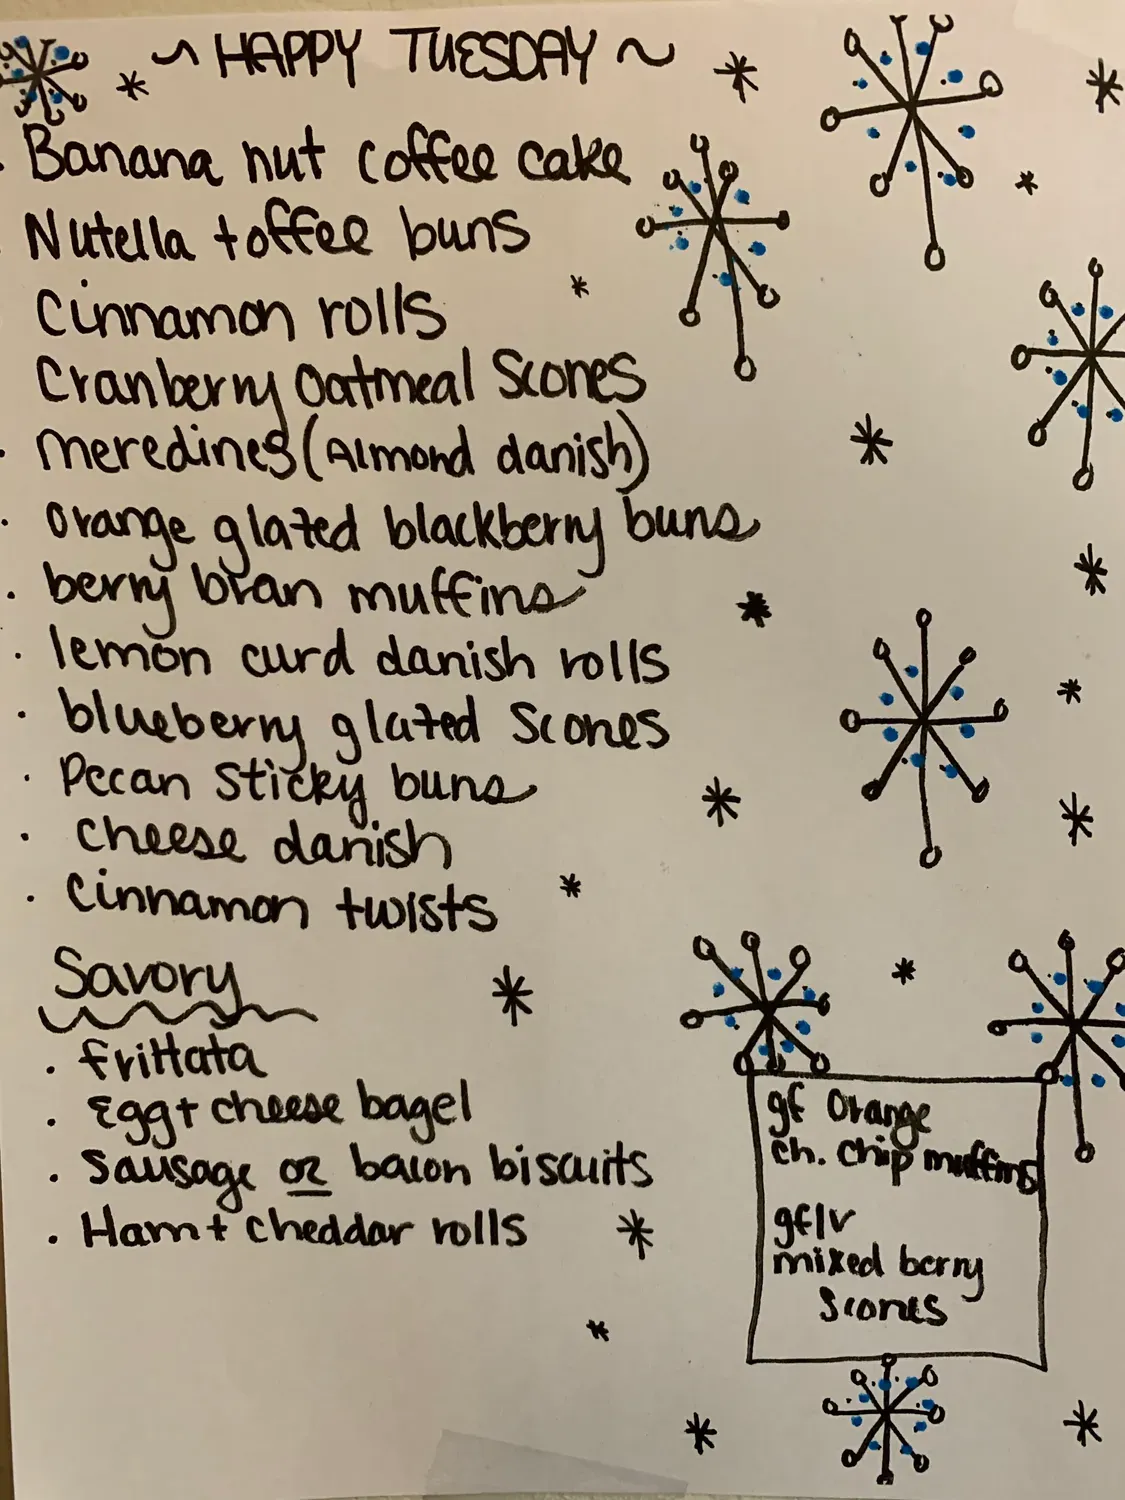 ~ HAPPY TUESDAY ~
. Banana nut coffee cake
. Nutella toffee buns
Cinnamon rolls
Cranberry Oatmeal Scones
. meredines (Almond danish)
. orange glazed blackberry buns
. berry bran muffins
. lemon curd danish rolls
. blueberry glazed Scones
. Pecan Sticky buns
. cheese danish
. cinnamon twists
Savory
. frittata
. Egg + cheese bagel
. Sausage or bacon biscuits
. Ham + cheddar rolls
gf Orange
ch. chip muffins
gf/v
mixed berry
scones